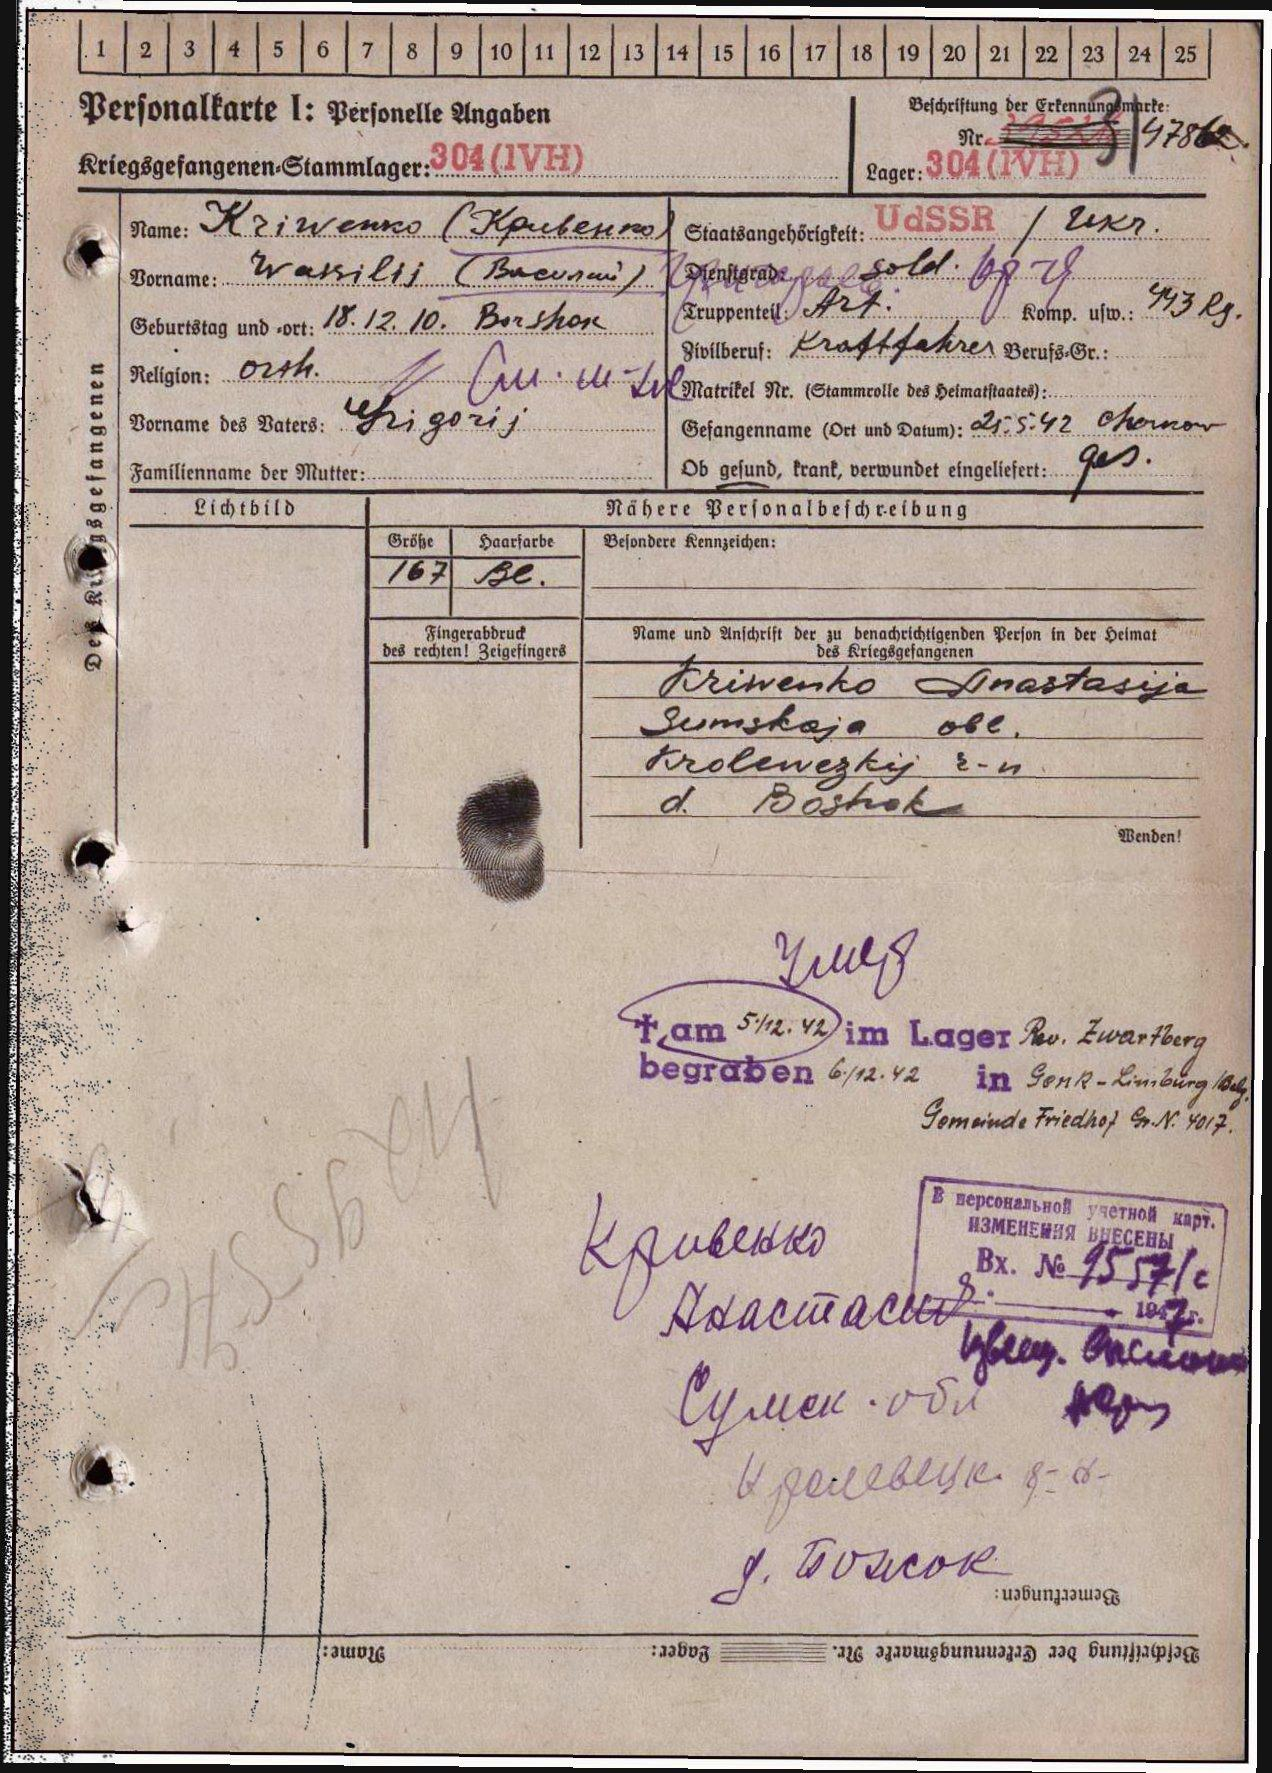 1 2 3 4 5 6 7 8 9 10 11 12 13 14 15 16 17 18 19 20 21 22 23 24 25
Personalkarte I: Personelle Angaben
Beschriftung der Erkennungsmarke:
Nr.
Kriegsgefangenen-Stammlager: 304 (IVH)
Lager: 304 (IVH)
Des Kriegsgefangenen
Name: Kriwenko (Кривенко)
Vorname: Wassilij (Василий)
Geburtstag und -ort: 18.12.10. Borshok
Religion: orth.
Vorname des Vaters: Grigorij
Familienname der Mutter:
Staatsangehörigkeit: UdSSR / Ukr.
Dienstgrad: sold.
Truppenteil: Art. Komp. usw.: 443 Rg.
Zivilberuf: Kraftfahrer Berufs-Gr.:
Matrikel Nr. (Stammrolle des Heimatstaates):
Gefangenname (Ort und Datum): 25.5.42
Ob gesund, krank, verwundet eingeliefert: ges.
Lichtbild
Nähere Personalbeschreibung
Größe Haarfarbe Besondere Kennzeichen:
167 Bl.
Fingerabdruck
des rechten! Zeigefingers
Name und Anschrift der zu benachrichtigenden Person in der Heimat
des Kriegsgefangenen
Kriwenko Anastasija
Sumskaja obl.
Krolewezkij r-n
d. Boshok
Wenden!
Умер
† am 5./12.42 im Lager Rev. Zwartberg
begraben 6./12.42 in Genk-Limburg/Belg.
Gemeinde Friedhof Gr.N. 4017.
В персональной учетной карт.
ИЗМЕНЕНИЯ ВНЕСЕНЫ
Вх. № 9557/с
1947г.
Кривенко
Анастасия
Сумск. обл
Кролевецк. р-н
д. Божок
Bemerkungen:
Beschriftung der Erkennungsmarke Nr. Lager: Name: